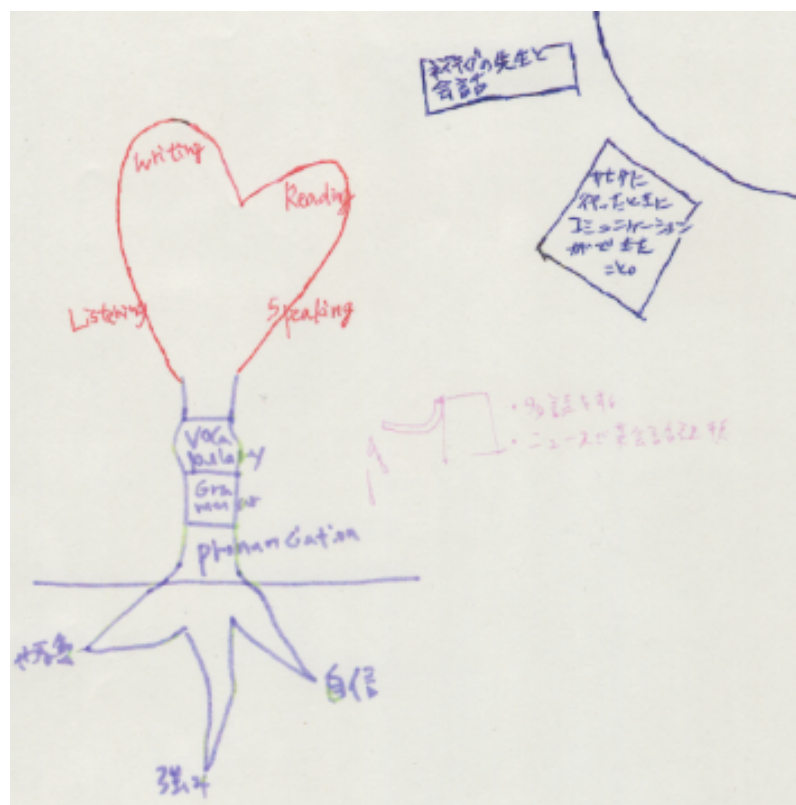 ネイティブの先生と
会話
カナダに
行ったときに
コミュニケーション
ができた
こと。
Writing
Reading
Listening
Speaking
Voca
bulary
Gra
mmar
pronunciation
自信
強み